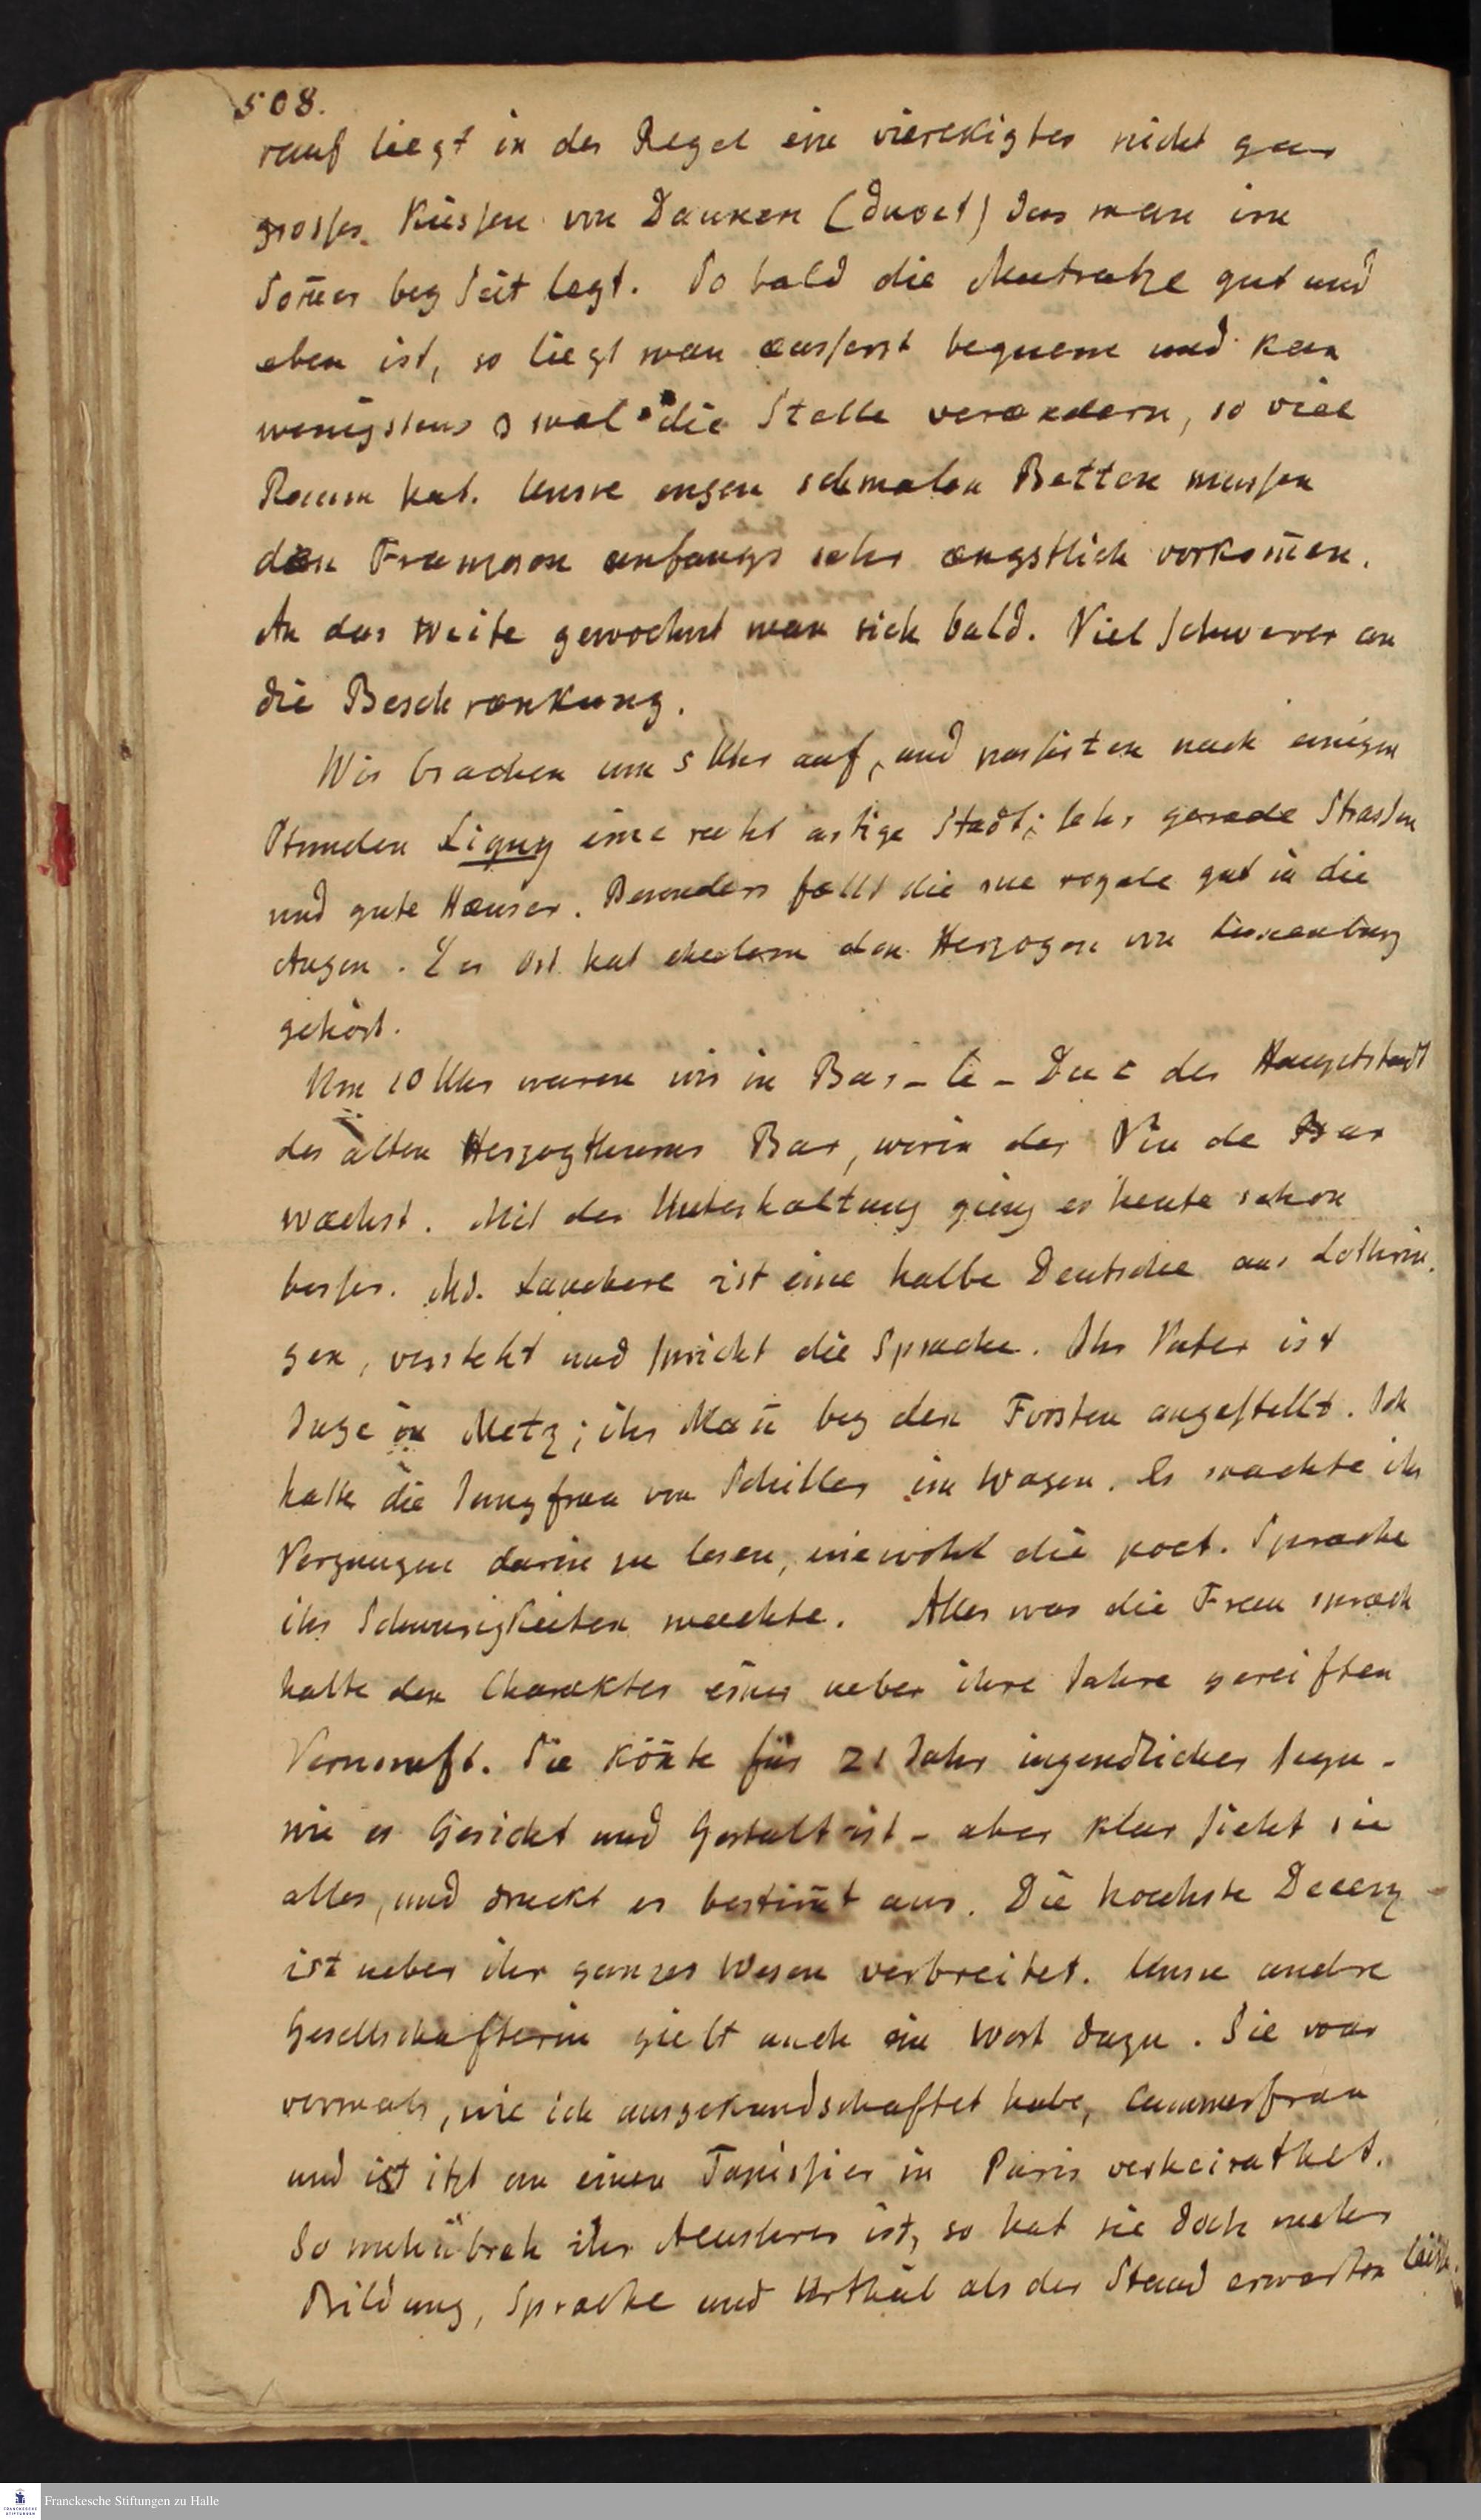 508.
rauf liegt in der Regel ein vierekigtes nicht gar
grosses Küssen von Daunen (duvet) das man im
Som̄er bey Seit legt. So bald die Matratze gut und
eben ist, so liegt man æusserst bequem und kan
wenigstens 3 mal die Stelle verændern, so viel
Raum hat. Unsre engen schmalen Betten mussen
den Franzosen anfangs sehr ængstlich vorkom̄en.
An das Weite gewoehnt man sich bald. Viel schwerer an
die Beschrænkung.
Wir brachen um 5 Uhr auf, und passirten nach einigen
Stunden Ligny eine recht artige Stadt; sehr gerade Strassen
und gute Hæuser. Besonders fællt die rue royale gut in die
Augen. Der Ort hat ehedem den Herzogen von Luxenburg
gehört.
Um 10 Uhr waren wir in Bar-le-Duc der Hauptstadt
des alten Herzogthums Bar, worin der Vin de Bar
wæchst. Mit der Unterhaltung ging es heute schon
besser. Md. Lauchere ist eine halbe Deutsche aus Lothrin-
gen, versteht und spricht die Sprache. Ihr Vater ist
Juge in Metz; ihr Man̄ bey den Forsten angestellt. Ich
hatte die Jungfrau von Schiller im Wagen. Es machte ihr
Vergnugen darin zu lesen, wiewohl die poet. Sprache
ihr Schwierigkeiten machte. Alles was die Frau sprach
hatte den Charakter einer ueber ihre Jahre gereiften
Vernunft. Sie kön̄te für 21 Jahr iugendlicher seyn -
wie es Gesicht und Gestalt ist - aber klar sieht sie
alles, und druckt es bestim̄t aus. Die hoechste Decenz
ist ueber ihr ganzes Wesen verbreitet. Unsre andre
Gesellschafterin giebt auch ein Wort dazu. Sie war
vormals, wie ich ausgekundschaftet habe, Cammerfrau
und ist itzt an einen Tapissier in Paris verheirathet.
So unhübsch ihr Aeusseres ist, so hat sie doch mehr
Bildung, Sprache und Urtheil als der Stand erwarten læsst.
Franckesche Stiftungen zu Halle